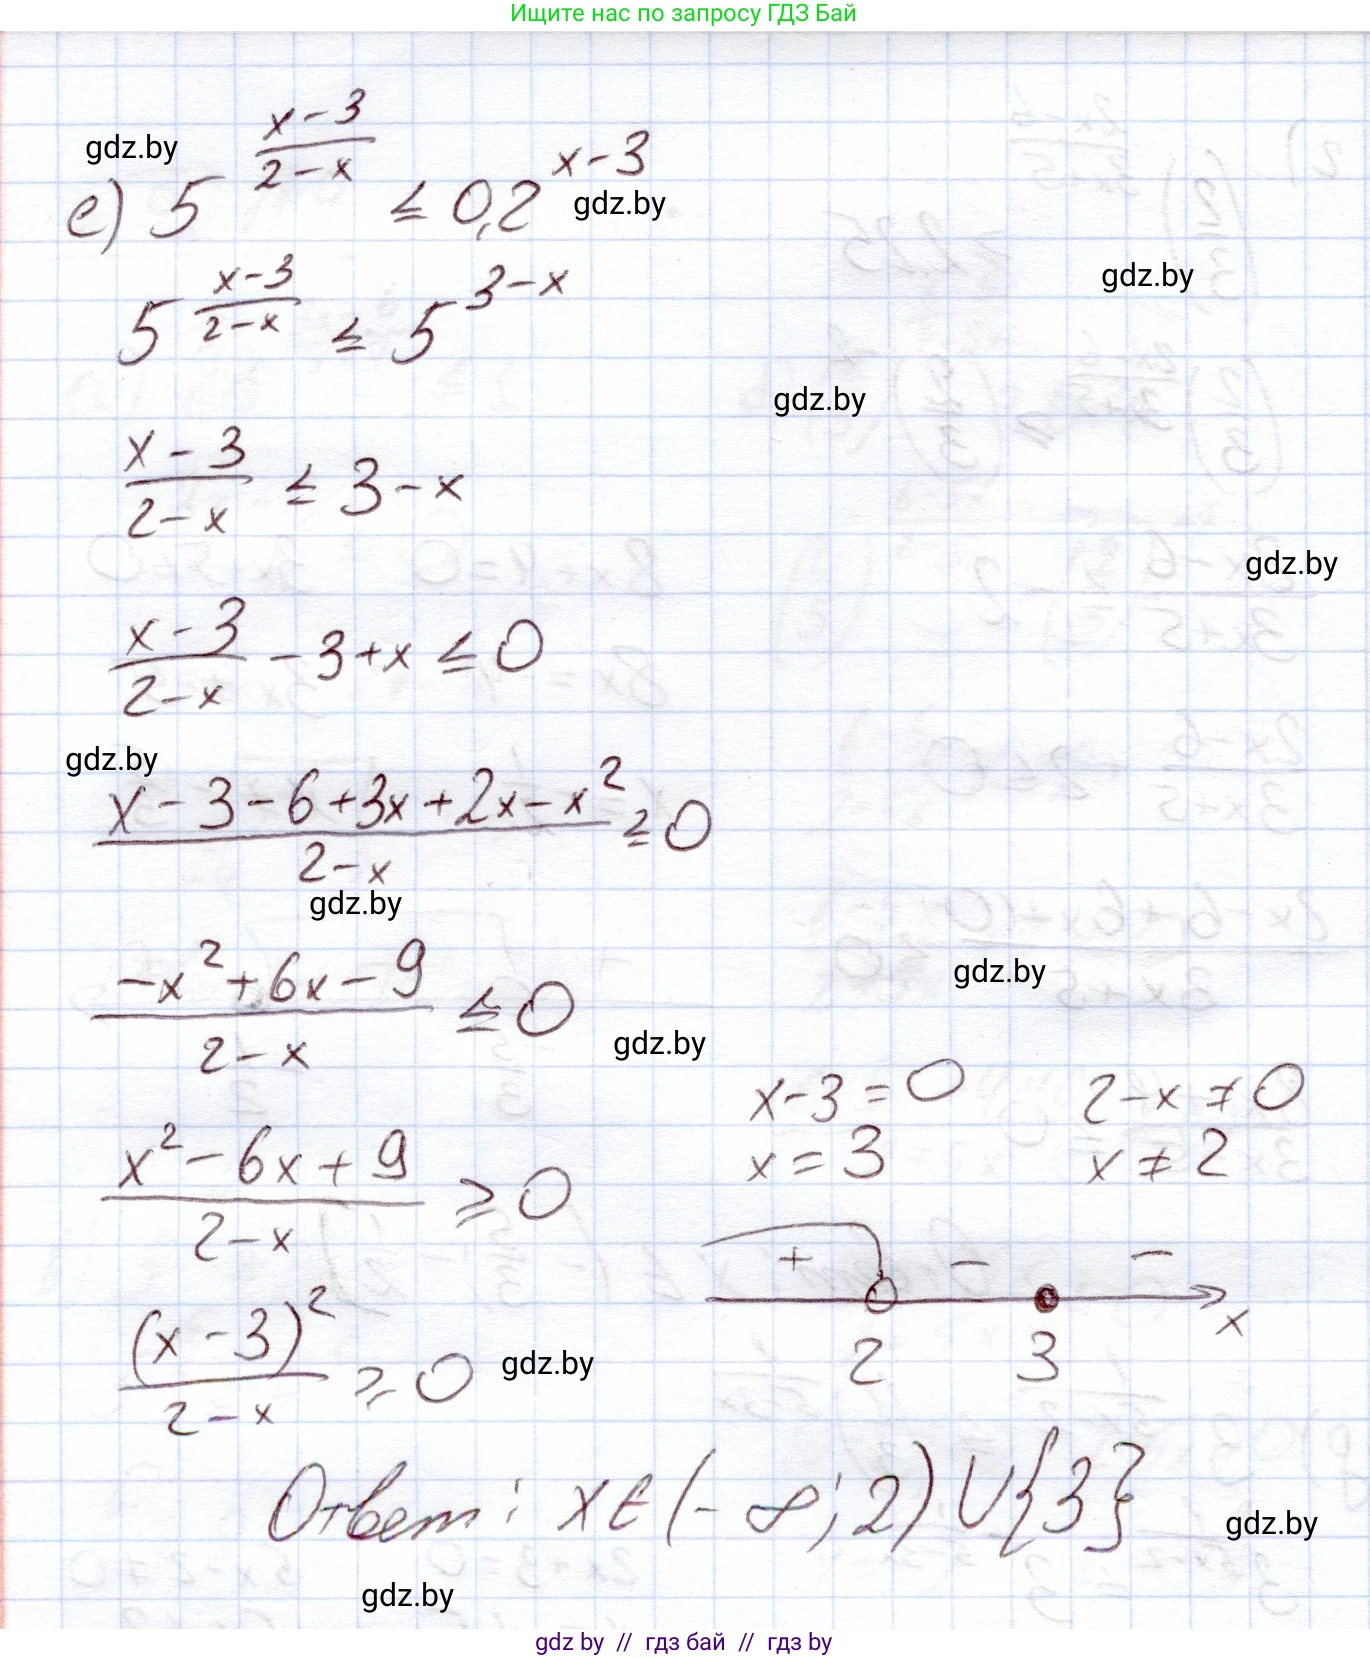 Ищите нас по запросу ГДЗ Бай
gdz.by
е) 5^((x-3)/(2-x)) ≤ 0,2^(x-3)
gdz.by
gdz.by
5^((x-3)/(2-x)) ≤ 5^(3-x)
gdz.by
(x-3)/(2-x) ≤ 3-x
gdz.by
(x-3)/(2-x) -3+x ≤ 0
gdz.by
(x-3-6+3x+2x-x²)/(2-x) ≥ 0
gdz.by
(-x²+6x-9)/(2-x) ≤ 0
gdz.by
gdz.by
x-3=0 2-x≠0
x=3 x≠2
(x²-6x+9)/(2-x) ≥ 0
+ - -
2 3 x
(x-3)²/(2-x) ≥ 0
gdz.by
Ответ: x∈(-∞;2)∪{3}
gdz.by
gdz.by
gdz by // гдз бай // гдз by